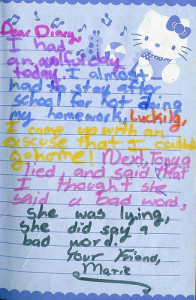 Dear Diary,
I had
an awful day
today I almost
had to stay after
school for not doing
my homework, Luckily,
I came up with an
excuse that I could
go home! Next, Tonya
lied, and said that
I thought she
said a bad word,
She was lying,
she did say a
bad word.
Your friend,
Marie